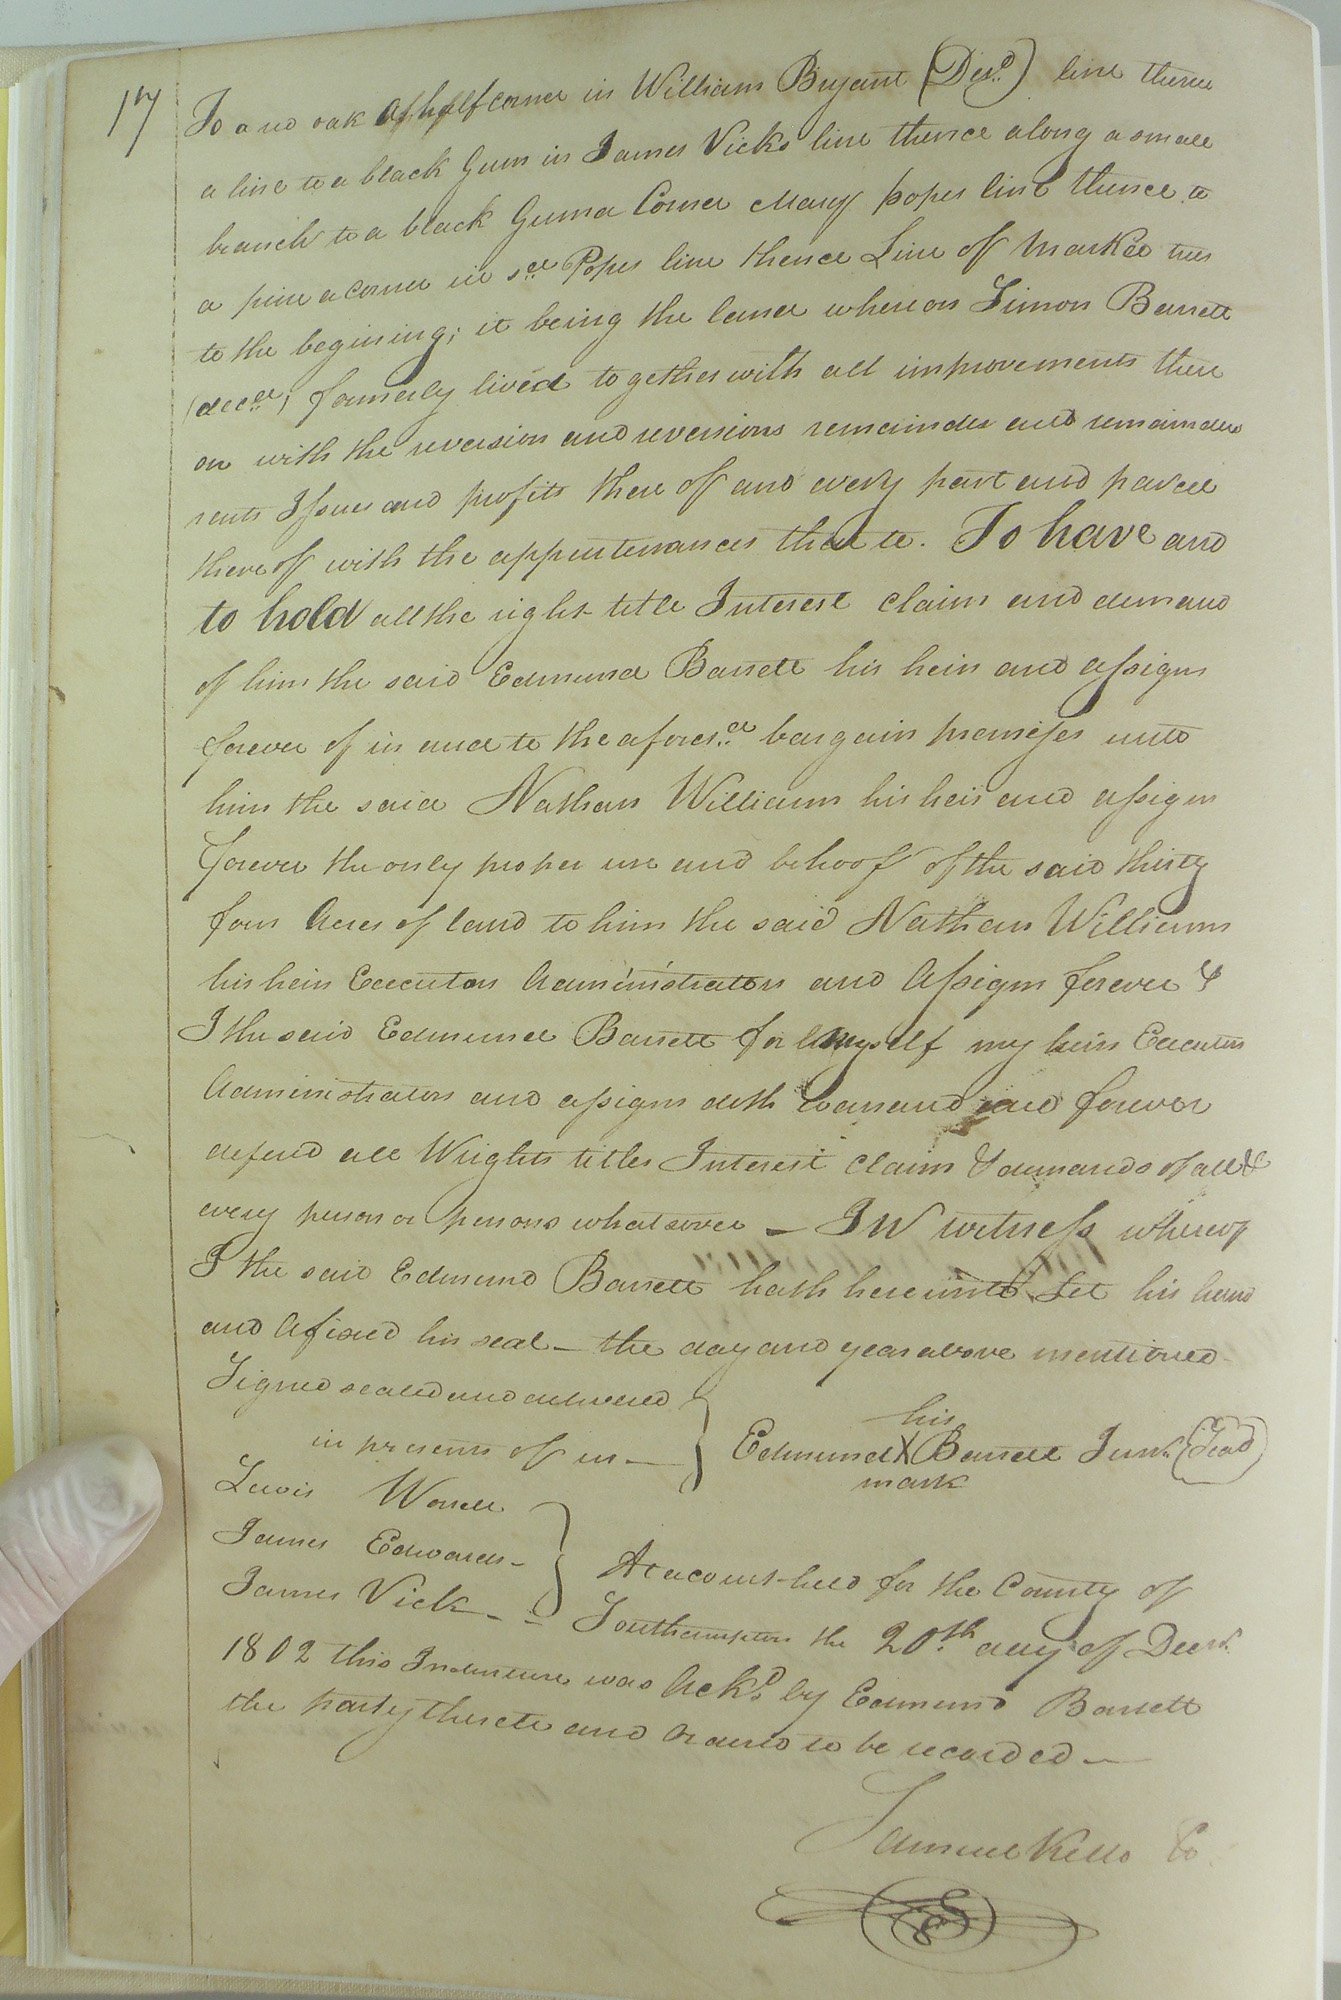 17
To a red oak a half corner in William Bryant (Desd) line thence
a line to a black Gum in James Vicks line thence along a small
branch to a black Gum a Corner Mary popes line thence to
a pine a corner in sd Popes line thence Line of Marked trees
to the begining; it being the land whereon Simon Barrett
(decd) formerly lived together with all improvements there
on with the reversion and reversions remainder and remainders
rents Issues and profits there of and every part and parcel
there of with the appurtenances thereto. To have and
to hold all the right title Interest claim and demand
of him the said Edmund Barrett his heirs and assigns
forever of in and to the aforesd bargain premises unto
him the said Nathan Williams his heirs and assigns
forever the only proper use and behoof of the said thirty
four Acres of land to him the said Nathan Williams
his heirs Executors Administrators and Assigns forever &
I the said Edmund Barrett for myself my heirs Executors
Administrators and assigns doth warrand and forever
defend all Wrights titles Interest claim & demands of all &
every person or persons whatsoever — IN witness whereof
I the said Edmund Barrett hath hereunto Set his hand
and Afixed his seal – the day and year above mentioned
Signed sealed and delivered
in presents of us —
his
Edmund X Barrett Junr (Seal)
mark
Lewis Worrell
James Edwards –
James Vick – –
At a court held for the County of
Southampton the 20th day of Decr
1802 this Indenture was Ackd by Edmund Barrett
the party thereto and Ordered to be recorded —
Samuel Kello Co